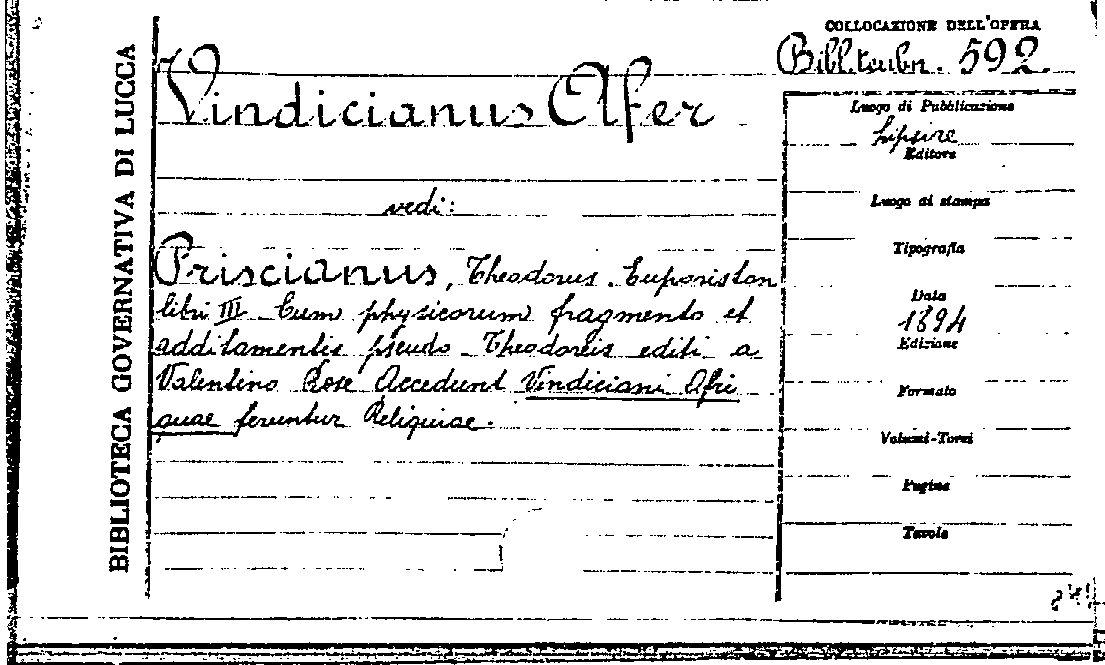 BIBLIOTECA GOVERNATIVA DI LUCCA
COLLOCAZIONE DELL'OPERA
Bibl. teubn. 592.
Vindicianus Afer
vedi:
Priscianus, Theodorus. Euporiston
libri III Cum physicorum fragmento et
additamentis pseudo-Theodoreis editi a
Valentino Rose Accedunt Vindiciani Afri
quae feruntur Reliquiae.
Luogo di Pubblicazione
Lipsiae
Editore
Luogo di stampa
Tipografia
Data
1894
Edizione
Formato
Volumi-Tomi
Pagine
Tavole